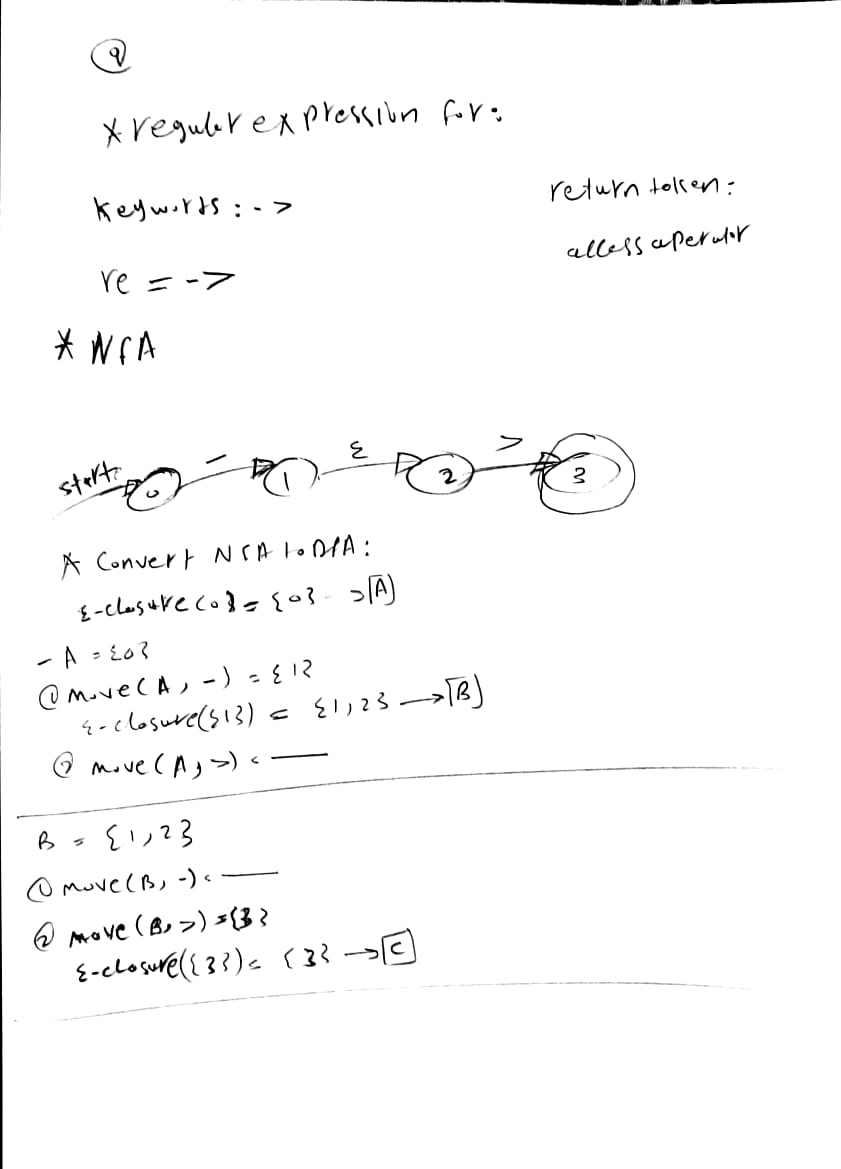 9
* reguler expression for:
keywords : ->
return token:
access operator
re = ->
* NFA
start 0 - 1 ε 2 > 3
* Convert NFA to DFA:
ε-closure(0) = {0} -> A
- A = {0}
① move(A, -) = {1}
ε-closure({1}) = {1,2} -> B
② move(A, >) = —
B = {1,2}
① move(B, -) = —
② move(B, >) = {3}
ε-closure({3}) = {3} -> C